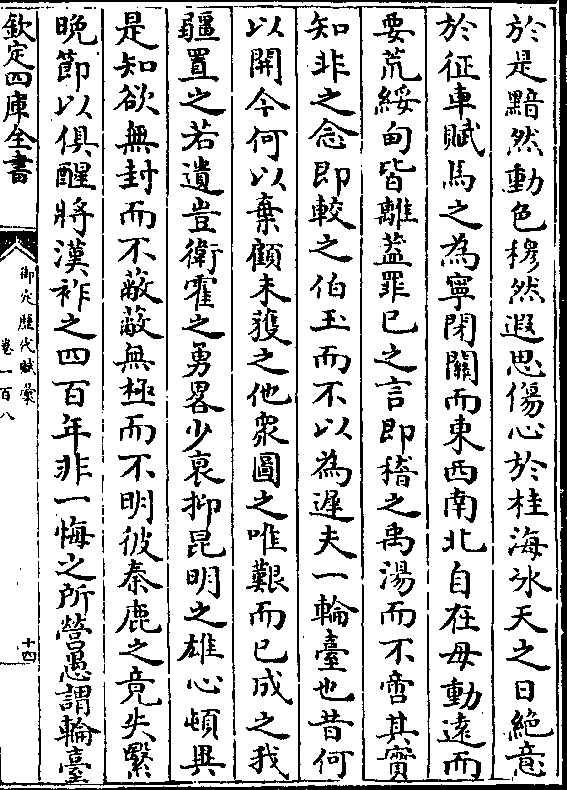 於是黯然動色穆然遐思傷心於桂海冰天之日絶意
於征車賦馬之為寧閉關而東西南北自在毋動遠而
要荒綏甸皆離葢罪已之言即稽之禹湯而不啻其實
知非之念即較之伯玉而不以為遲夫一輪臺也昔何
以開今何以棄顧未獲之他衆圖之唯艱而已成之我
疆置之若遺豈衛霍之勇畧少衰抑昆明之雄心頓異
是知欲無封而不蔽蔽無極而不明彼秦鹿之竟失緊
晩節以俱醒將漢祚之四百年非一悔之所營愚謂輪臺
欽定四庫全書
御定歷代賦彙
卷一百八
十四